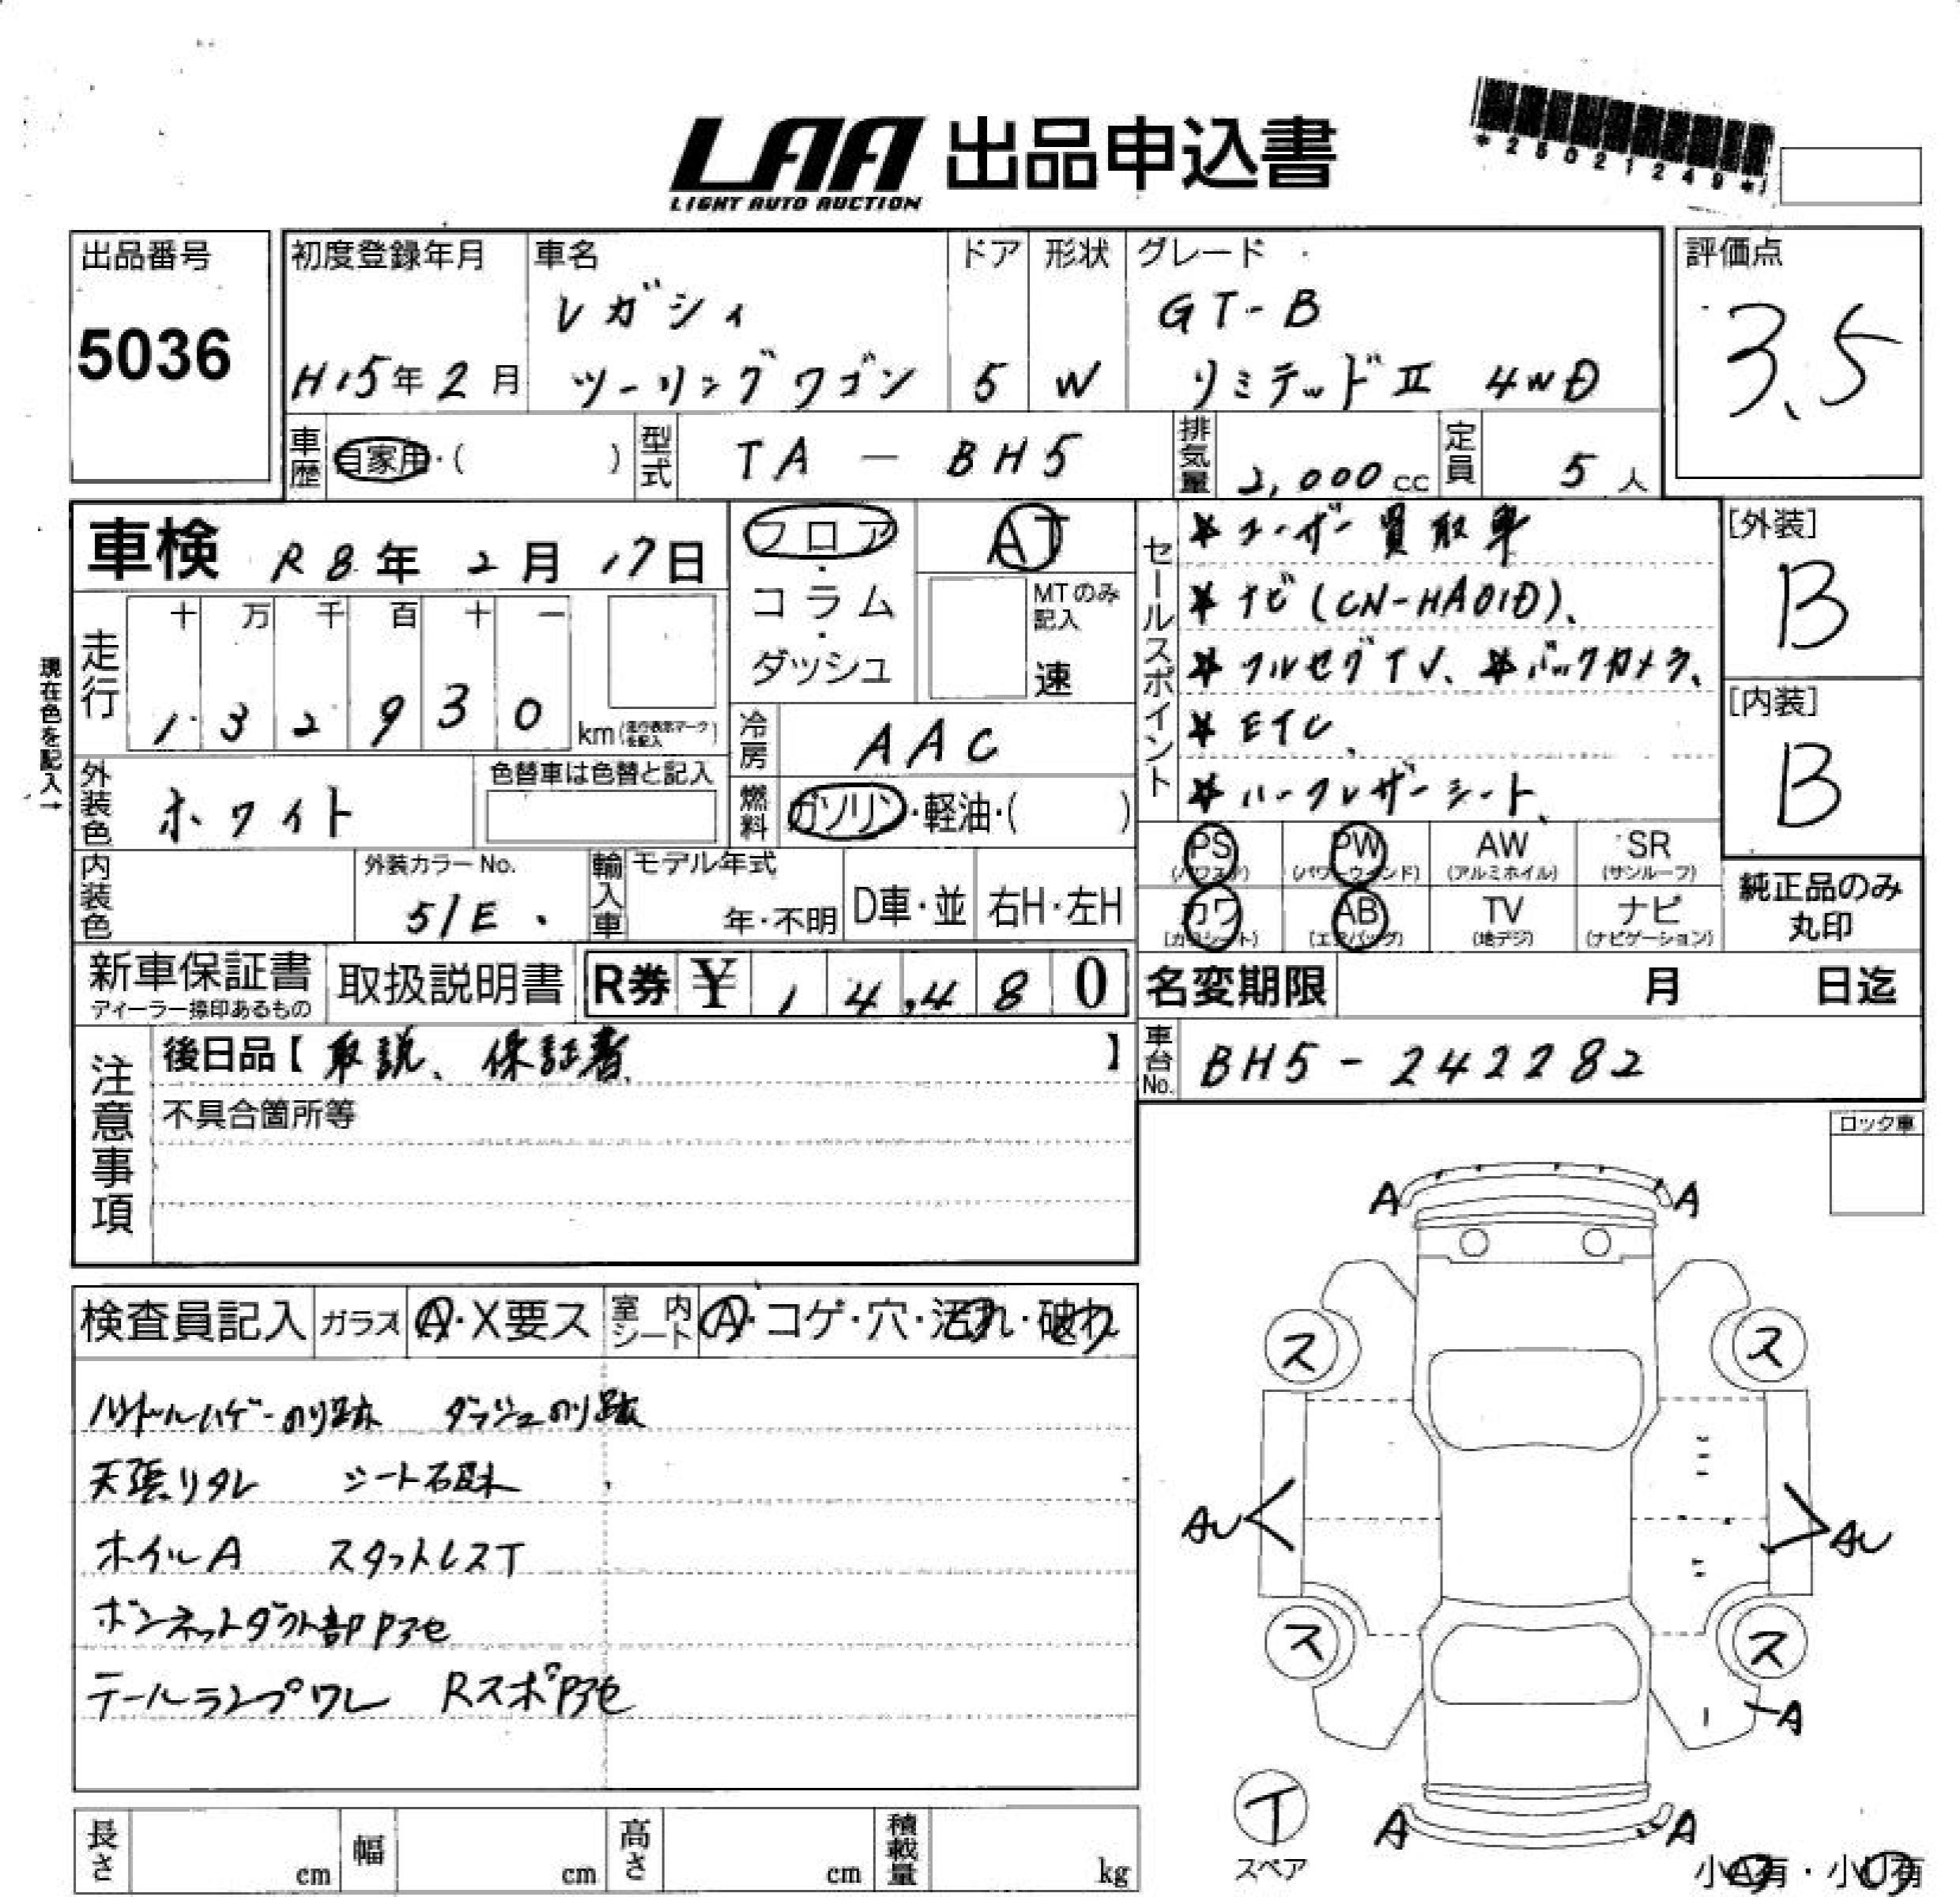 LAA 出品申込書
LIGHT AUTO AUCTION
*25021249*
出品番号
5036
初度登録年月
H15年2月
車名
レガシィ
ツーリングワゴン
ドア
5
形状
W
グレード
GT-B
リミテッドⅡ 4WD
評価点
3.5
車歴
自家用・( )
型式
TA-BH5
排気量
2,000cc
定員
5人
車検 R8年2月17日
フロア
・
コラム
・
ダッシュ
AT
MTのみ
記入
速
走行
十 万 千 百 十 一
1 3 2 9 3 0
km(走行表示マークを記入)
現在色を記入→
冷房
AAC
燃料
ガソリン・軽油・( )
外装色
ホワイト
色替車は色替と記入
内装色
外装カラーNo.
51E
輸入車
モデル年式
年・不明
D車・並
右H・左H
セールスポイント
*ユーザー買取車
*ナビ(CN-HA01D)、
*フルセグTV、*バックカメラ、
*ETC、
*ハーフレザーシート、
[外装]
B
[内装]
B
PS
(パワステ)
PW
(パワーウインド)
AW
(アルミホイル)
SR
(サンルーフ)
カワ
(カワシート)
AB
(エアバッグ)
TV
(地デジ)
ナビ
(ナビゲーション)
純正品のみ
丸印
新車保証書
ディーラー捺印あるもの
取扱説明書
R券 ¥ 14,480
名変期限 月 日迄
注意事項
後日品【取説、保証書】
不具合箇所等
車台No.
BH5-242282
ロック車
検査員記入
ガラス
A・X要ス
室内シート
A・コゲ・穴・汚れ・破れ
ハンドルハゲ-のり跡 ダッシュのり跡
天張りタレ
ホイルA スタットレスT
ボンネットダクト部Pアセ
テールランプワレ RスポPアセ
A A
ス ス
AU AU
ス ス
A
A A
T
スペア
小A有・小U有
長さ cm
幅 cm
高さ cm
積載量 kg